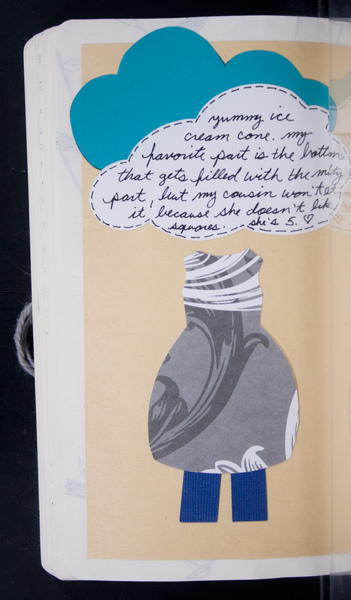 yummy ice
cream cone. my
favorite part is the bottom
that gets filled with the melty
part, but my cousin won't eat
it, because she doesn't like
squares. she's 5. ♡